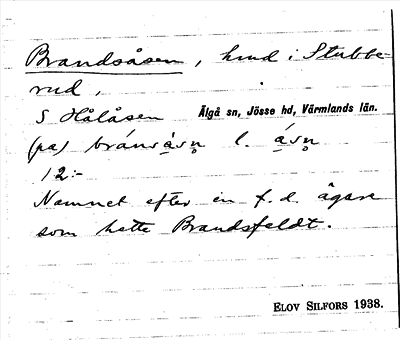 Brandsåsen, hmd i Stubbe-
rud,
S Hålåsen Älgå sn, Jösse hd, Värmlands län.
(pa) bránsåsn l. åsn
12:-
Namnet efter en f.d. ägare
som hette Brandsfeldt.
ELOV SILFORS 1938.